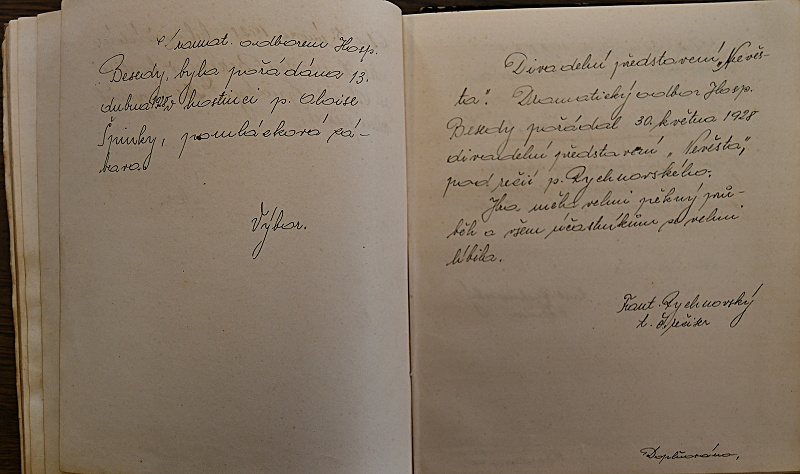 Dramat. odborem Hosp.
Besedy, byla pořádána 13.
dubna 1928 v hostinci p. Aloise
Špinky, pomlázková zá-
bava
Výbor.
Divadelní představení „Nevěs-
ta“. Dramatický odbor Hosp.
Besedy pořádal 30. května 1928
divadelní představení „Nevěsta„
pod režií p. Rychnovského.
Hra měla velmi pěkný prů-
běh a všem účastníkům se velmi
líbila.
Frant. Rychnovský
t. č.
Doplňováno,